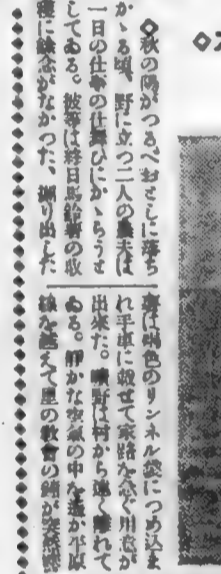 ◇秋の陽がつるべおとしに落ち
かゝる頃、野に立つ二人の農夫は
一日の仕事の仕舞ひにかゝらうと
してゐる。彼等は終日馬鈴薯の収
穫に餘念がなかつた、掘り出した
薯は褐色のリンネル袋につめ込ま
れ手車に載せて家路を急ぐ用意が
出來た。曠野は村から遠く離れて
ゐる。靜かな空氣の中を遙か平原
線を越えて里の教會の鐘が突然